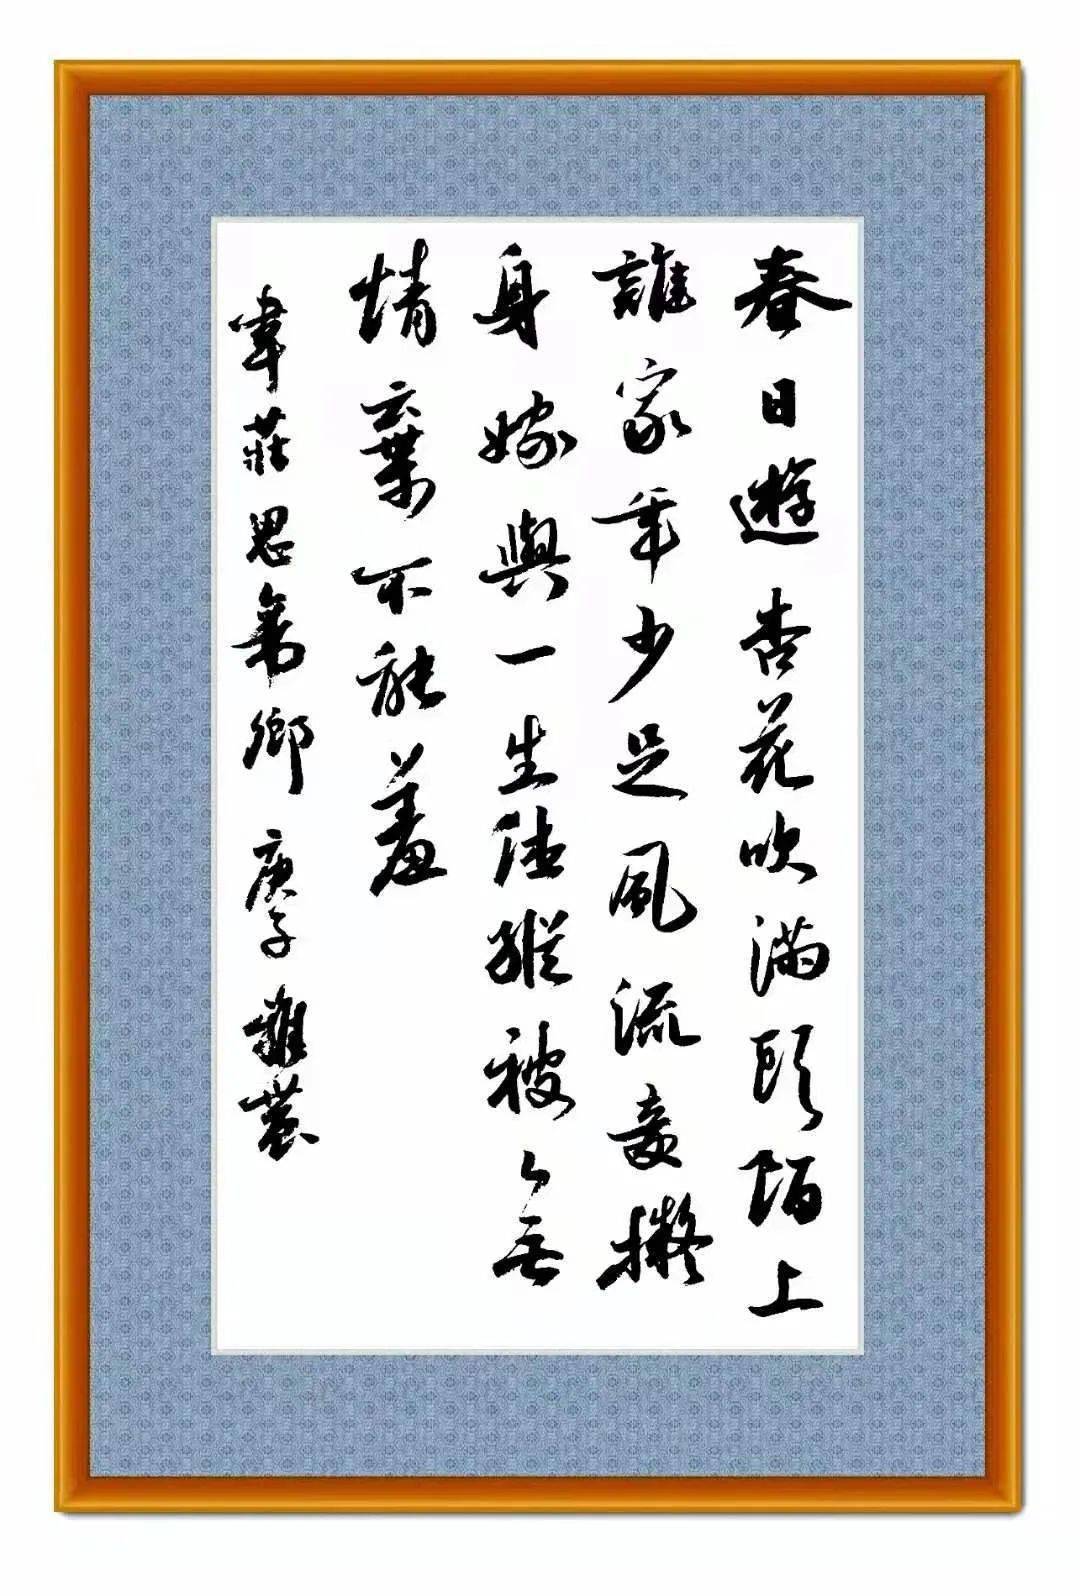 春日遊杏花吹滿頭陌上
誰家年少足風流妾擬
身嫁與一生休縱被無
情棄不能羞
韋莊思帝鄉 庚子